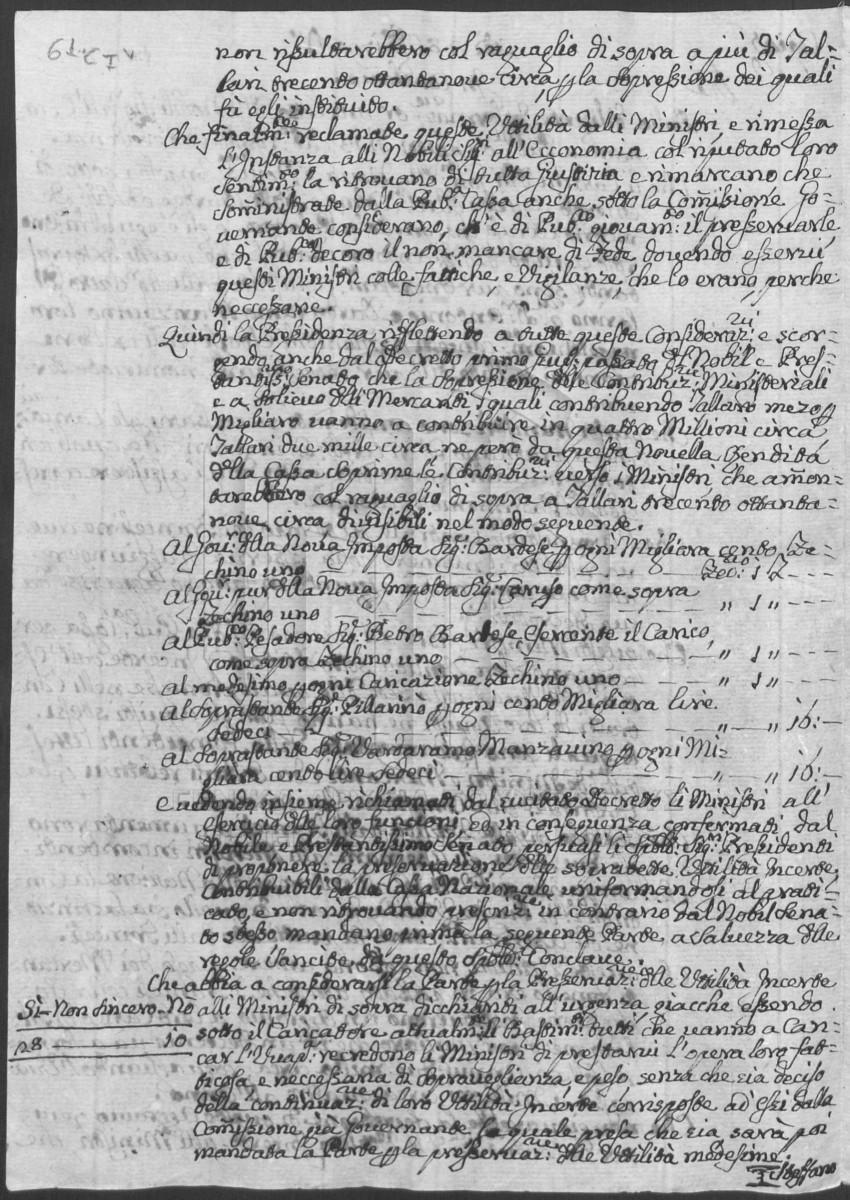 non risultarebbero col raguaglio di sopra a più di Tal=
lari trecento ottantanove circa p la sopressione dei quali
fù egli instituido.
Che finalm:te reclamate queste Uttilità dalli Ministri e rimessa
l'Instanza alli Nobili Sig:ri all'Economia col riputato loro
sentim:to la ritrovano di tutta Giustizia e rimarcano che
somministrate dalla Pub:ca Cassa anche sotto la Comissione Go=
vernante considerano, ch'è di Pub:co giovam:to il presservarle
e di Pub:co decoro il non mancare di Fede dovendo esservi
questi Ministri colle fattiche, e Vigilanze, che lo erano perche
neccessarie.
Quindi la Presidenza riflettendo a tutte queste Consideraz:ni e scor=
gendo anche dal Decretto primo pass:to del Nobil e Pres=
tantiss:mo Senato che la sopressione delle Contribuz:ni Ministeriali
e a solievo delli Mercanti i quali contribuendo Tallaro mezo p
Migliaro vanno a contribuire in quattro Millioni circa
Tallari due mille circa ne però da questa Novella Rendita
della Cassa soprime le Contribuz:ni verso i Ministri che amon=
tarebbero col raguaglio di sopra a Tallari trecento ottanta=
nove circa divisibili nel modo seguente.
Al Gov:r della Nova Imposta Sig:r Bardese p ogni Migliara cento Ze=
chino uno — — — Zec: 1 Z — — —
Al Gov: pur della Nova Imposta Sig:r Caruso come sopra
Zechino uno — — — " 1 " — — —
Al Pub:co Pesadore Sig:r Pietro Bardese esercente il Carico,
come sopra Zechino uno — — — " 1 " — — —
al medesimo p ogni Caricazione Zechino uno — — " 1 " — — —
al Soprastante Sig:r Pillarinò p ogni cento Migliara lire
sedeci — — — " " 16: —
al Soprastante Sig:r Vardaramo Manzavino p ogni Mi=
gliara cento lire sedeci — — — " " 16: —
e vedendo insieme richiamati dal sucitato Decretto li Ministri all'
esercicio delle loro funcioni ed in conseguenza confermati dal
Nobile e Prestantissimo Senato persuasi li Spett:li Sig:ri Presidenti
di proponere la preservazione delle sopradette Uttilità Incerte
Contribuibili dalla Cassa Nazionale uniformandosi al gradi=
cato, e non ritrovando prescriz:ne in contrario dal Nobil Sena=
to stesso mandano prima la seguente Parte a salvezza delle
regole sancite da questo Spett:le Conclave.
Che abbia a considerarsi la Parte p la Presservaz:ne delle Uttilità Incerte
Si – Non Sincero – Nò
28 ——— 10
alli Ministri di sopra dicchiariti all'urgenza giacche essendo
sotto il Caricattore attualm:te li Bastim:ti tutti che vanno a Cari=
car l'Uvap: recredono li Ministri di prestarvi l'opera loro fat=
ticosa, e neccessaria di sopraveglianza, e peso senza che sia deciso
della continuaz:ne di loro Uttilità Incerte corrisposte ad essi dalla
Comissione già Governante la quale presa che sia sarà poi
mandata la Parte p la presservaz:ne delle Uttilità medesime.
Steffano